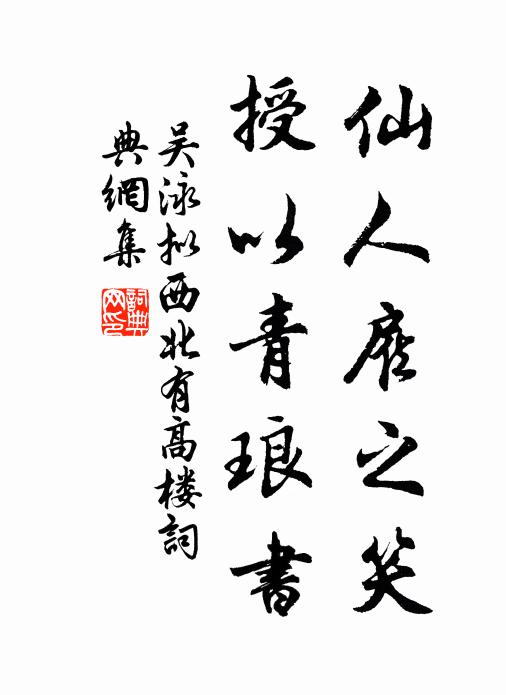 仙人應之笑
授以青琅書
吴泳拟西北有高楼詞
典網集
詞典
网印